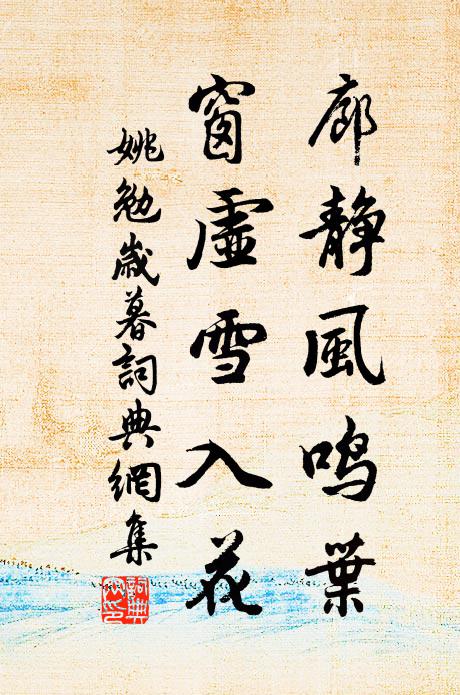 廊静風鸣葉
窗虛雪入花
姚勉歲暮詞典網集